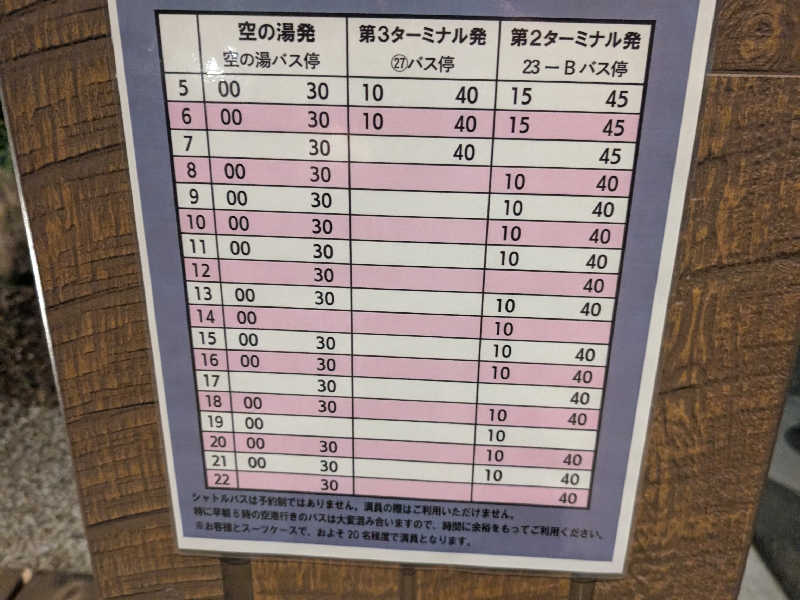 空の湯発 第3ターミナル発 第2ターミナル発
空の湯バス停 ㉗バス停 23ーBバス停
5 00 30 10 40 15 45
6 00 30 10 40 15 45
7 30 40 45
8 00 30 10 40
9 00 30 10 40
10 00 30 10 40
11 00 30 10 40
12 30 40
13 00 30 10 40
14 00 10
15 00 30 10 40
16 00 30 10 40
17 30 40
18 00 30 10 40
19 00 10
20 00 30 10 40
21 00 30 10 40
22 30 40
シャトルバスは予約制ではありません。満員の際はご利用いただけません。
特に早朝5時の空港行きのバスは大変混み合いますので、時間に余裕をもってご利用ください。
※お客様とスーツケースで、およそ20名程度で満員となります。